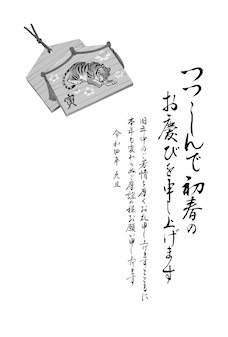 つつしんで初春の
お慶びを申し上げます
旧年中のご芳情を厚くお礼申し上げますとともに
本年も変わらぬご厚誼の程お願い申し上げます
令和四年 元旦
寅